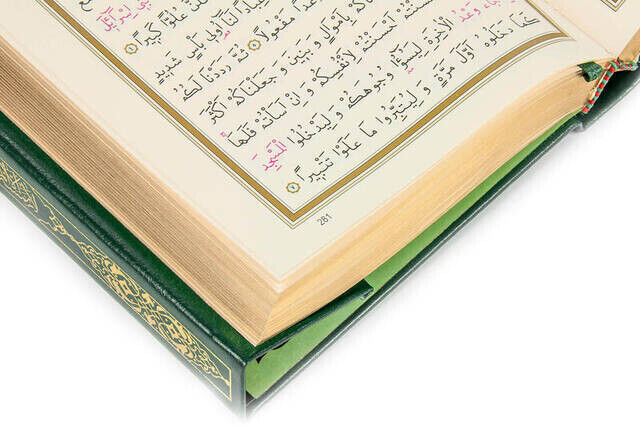 عُلُوًّا كَبِيرًا
لَنَٓا اُو۬لِي بَأْسٍ شَدِيدٍ
مَفْعُولًا ثُمَّ رَدَدْنَا لَكُمُ
بِاَمْوَالٍ وَبَنِينَ وَجَعَلْنَاكُمْ اَكْثَرَ
اَحْسَنْتُمْ لِاَنْفُسِكُمْ وَاِنْ اَسَأْتُمْ فَلَهَا
جَٓاءَ وَعْدُ الْاٰخِرَةِ لِيَسُٓؤُ۫ا وُجُوهَكُمْ وَلِيَدْخُلُوا الْمَسْجِدَ
كَمَا دَخَلُوهُ اَوَّلَ مَرَّةٍ وَلِيُتَبِّرُوا مَا عَلَوْا تَتْبِيرًا
281